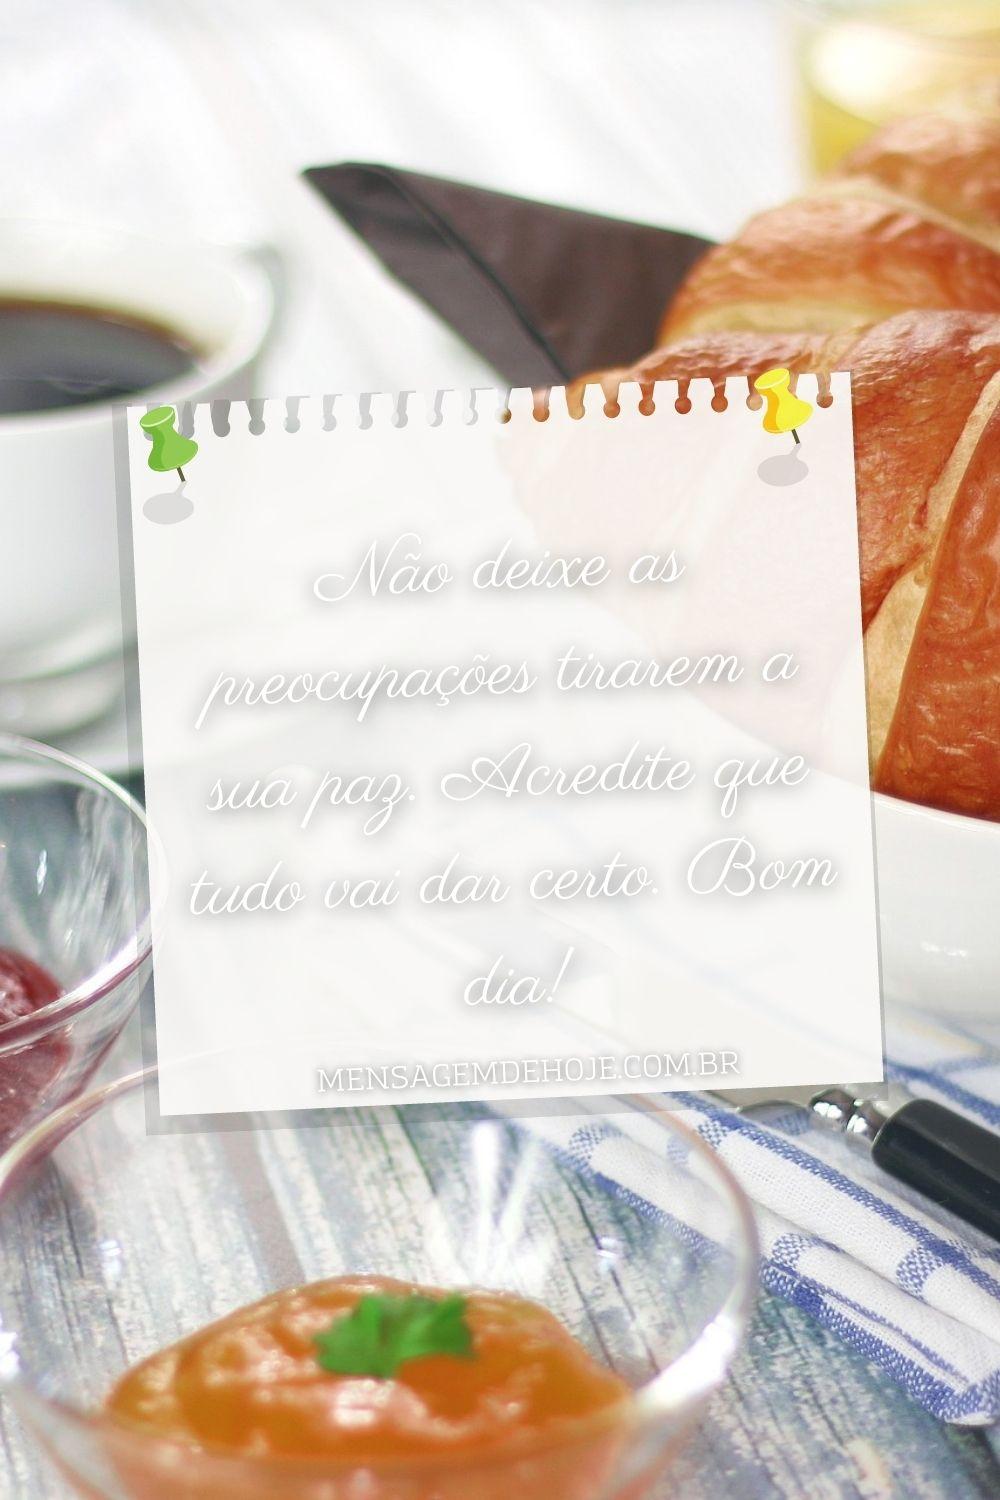 Não deixe as
preocupações tirarem a
sua paz. Acredite que
tudo vai dar certo. Bom
dia!
MENSAGEMDEHOJE.COM.BR